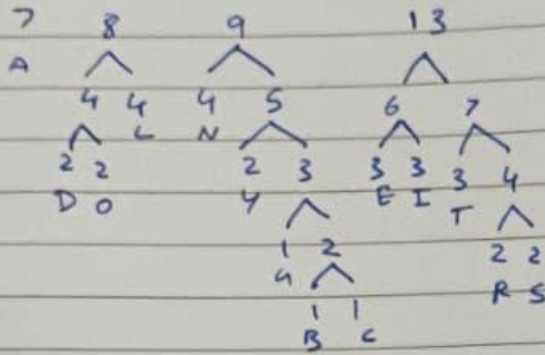 7 8 9 13
A
4 4 4 5 6 7
L N
2 2 2 3 3 3 3 4
D O Y E I T
1 2 2 2
G R S
1 1
B C